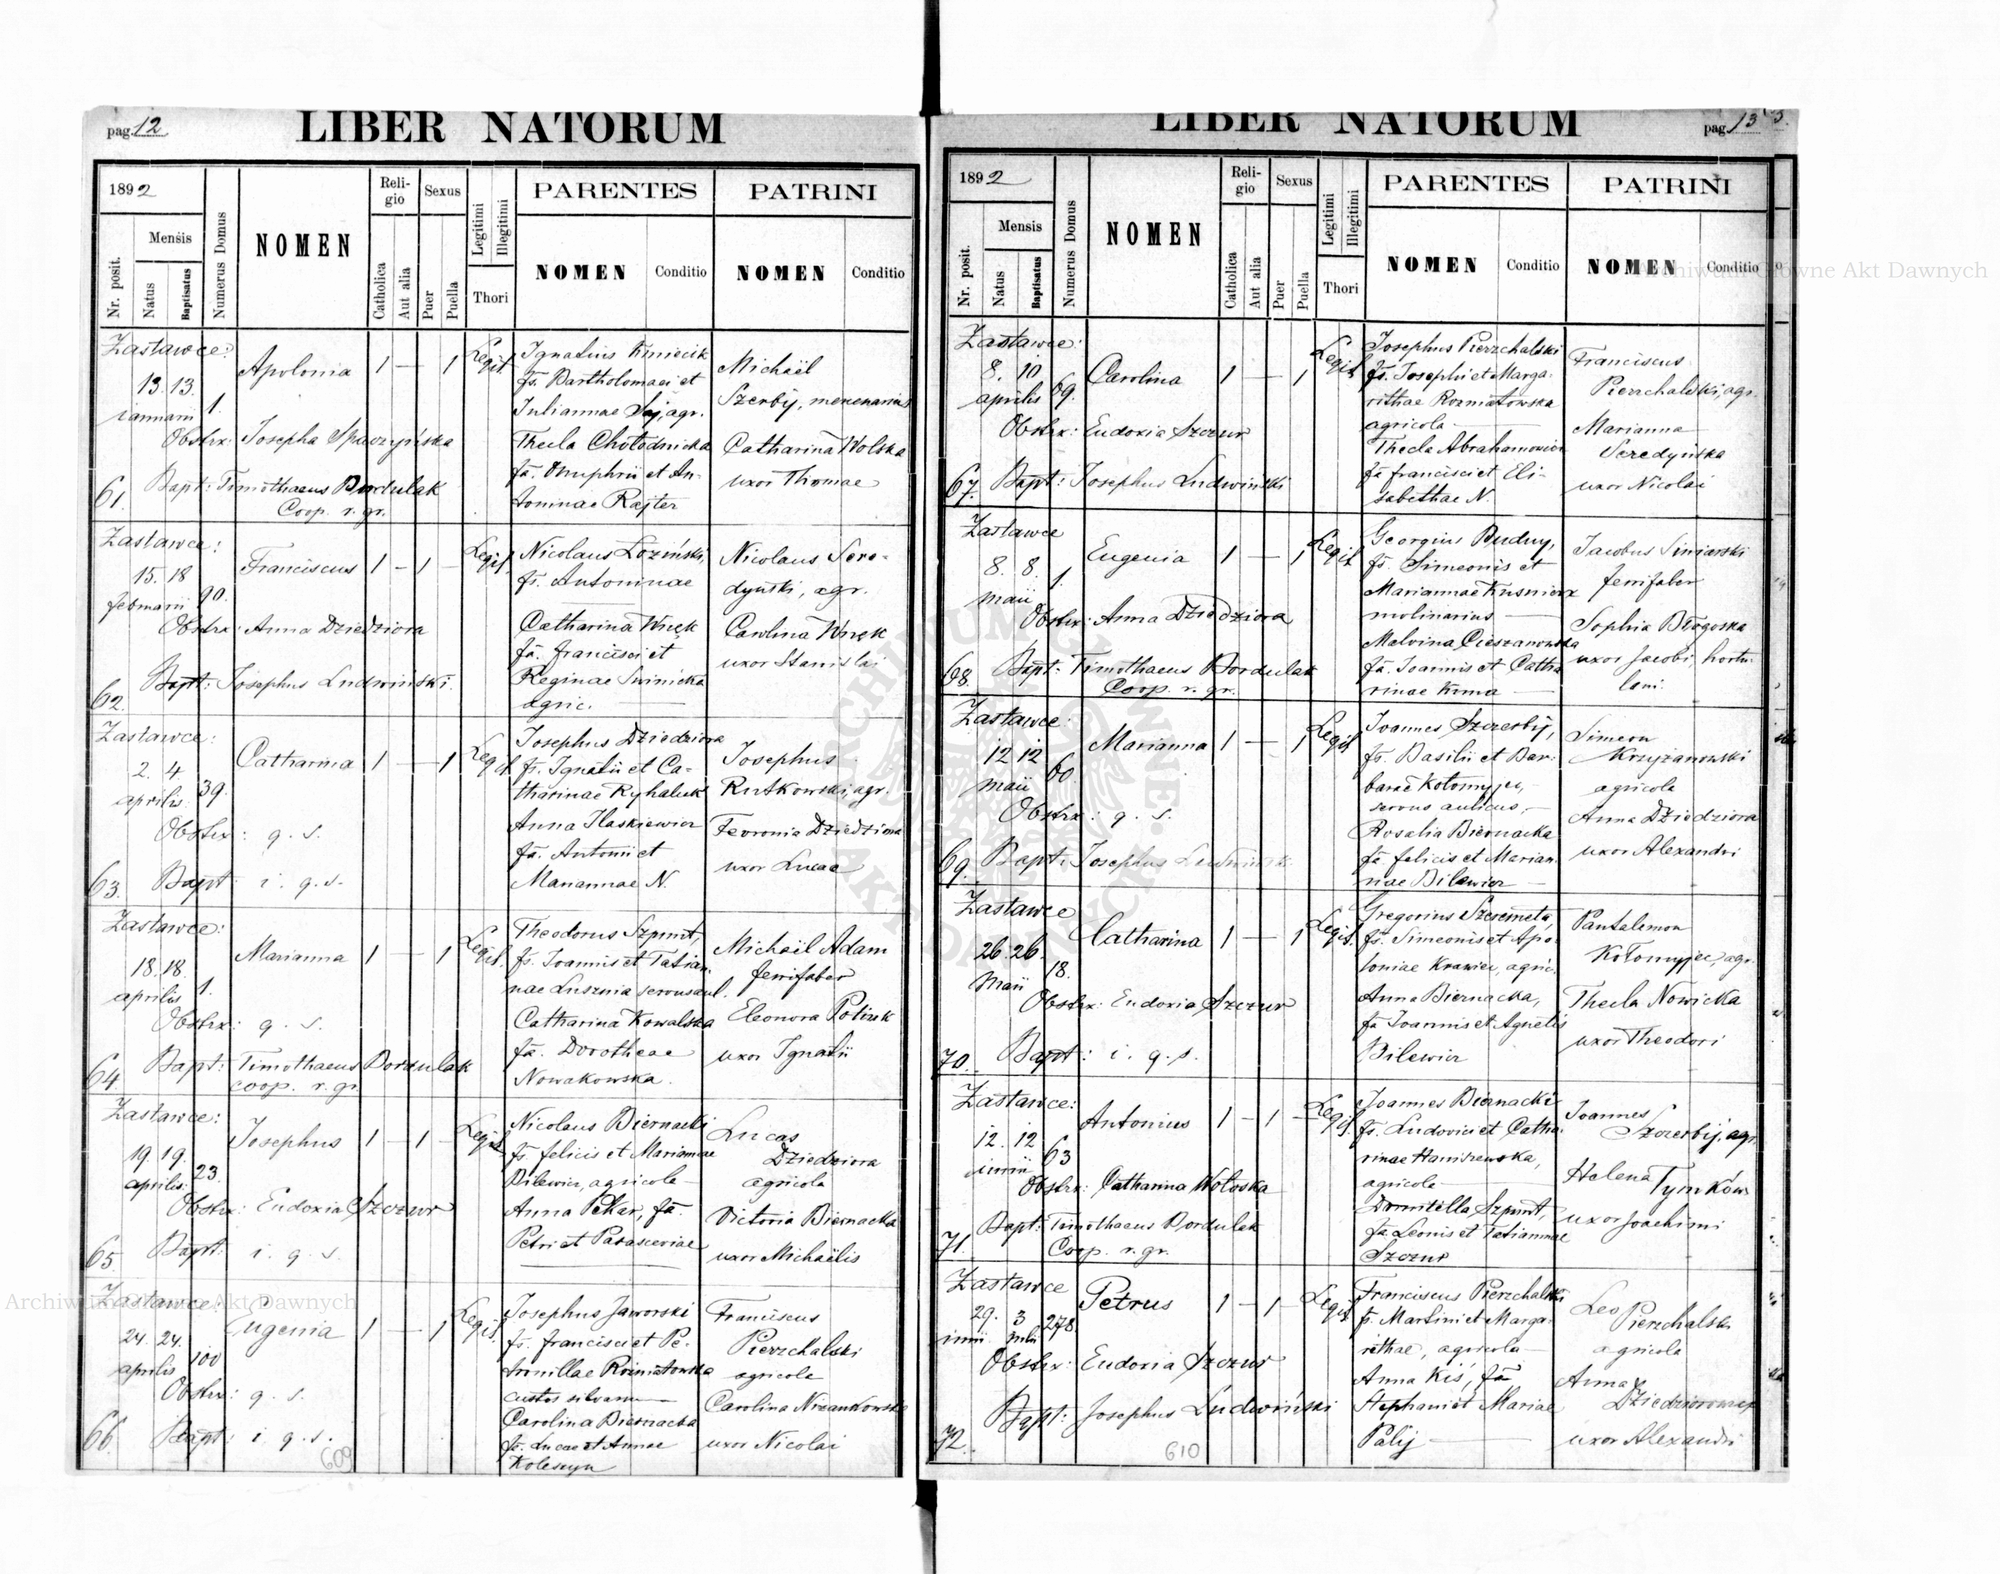 pag. 12
LIBER NATORUM
1892
Nr. posit.
Mensis
Natus
Baptisatus
Numerus Domus
NOMEN
Religio
Catholica
Aut alia
Sexus
Puer
Puella
Legitimi
Illegitimi
Thori
PARENTES
NOMEN
Conditio
PATRINI
NOMEN
Conditio
Zastawce:
13. 13.
januarii
1.
Apolonia
1 — 1
Legit.
Ignatius Kmiecik
fs. Bartholomaei et
Juliannae Saj, agr.
Thecla Chołodnicka
fa. Onuphrii et An-
toninae Rajter
Michaël
Szerbij, mercenarius
Catharina Wolska
uxor Thomae
Obstrx: Josepha Spaczyńska
61. Bapt: Timothaeus Bordulak
Coop. r. gr.
Zastawce:
15. 18
februarii
90.
Franciscus
1 — 1
Legit.
Nicolaus Łoziński,
fs. Antoninae
Catharina Wnęk
fa. francisci et
Reginae Swinicka
agric.
Nicolaus Sere-
dyński, agr.
Carolina Wnęk
uxor Stanislai
Obstrx: Anna Dziedziora
62. Bapt: Josephus Ludwiński.
Zastawce:
2. 4
aprilis
39.
Catharina
1 — 1
Legit.
Josephus Dziedziora
fs. Ignatii et Ca-
tharinae Ryhaluk
Anna Ilaskiewicz
fa. Antonii et
Mariannae N.
Josephus
Rutkowski, agr.
Fevronia Dziedziora
uxor Lucae
Obstrx: q. s.
63. Bapt: i. q. s.
Zastawce:
18. 18.
aprilis
1.
Marianna
1 — 1
Legit.
Theodorus Szpunt,
fs. Joannis et Tatian-
nae Lusznia
Catharina Kowalska
fa. Dorotheae
Nowakowska.
Michaël Adam
ferrifaber
Eleonora Potizek
uxor Ignatii
Obstrx: q. s.
64. Bapt: Timothaeus Bordulak
coop. r. gr.
Zastawce:
19. 19.
aprilis
23.
Josephus
1 — 1
Legit.
Nicolaus Biernacki
fs. felicis et Mariannae
Bilewicz, agricola
Anna Pekar, fa.
Petri et Parasceviae
Lucas
Dziedziora
agricola
Victoria Biernacka
uxor Michaëlis
Obstrx: Eudoxia Szczur
65. Bapt: i. q. s.
Zastawce:
24. 24.
aprilis
100
Eugenia
1 — 1
Legit.
Josephus Jaworski
fs. francisci et Pe-
tronillae Rozmatowska
custos silvarum
Carolina Biernacka
fa. Lucae et Annae
Koleszyn
Franciscus
Pierzchalski
agricola
Carolina
uxor Nicolai
Obstrx: q. s.
66. Bapt: i. q. s.
609
Archiwum Główne Akt Dawnych
pag. 13
3.
LIBER NATORUM
1892
Nr. posit.
Mensis
Natus
Baptisatus
Numerus Domus
NOMEN
Religio
Catholica
Aut alia
Sexus
Puer
Puella
Legitimi
Illegitimi
Thori
PARENTES
NOMEN
Conditio
PATRINI
NOMEN
Conditio
Archiwum Główne Akt Dawnych
Zastawce:
8. 10
aprilis
69.
Carolina
1 — 1
Legit.
Josephus Pierzchalski
fs. Josephi et Marga-
rithae Rozmatowska
agricola
Thecla Abrahamowicz
fa francisci et Eli-
sabethae N.
Franciscus
Pierzchalski, agr.
Marianna
Seredyńska
uxor Nicolai
Obstrx: Eudoxia Szczur
67. Bapt: Josephus Ludwiński
Zastawce
8. 8.
maii
1.
Eugenia
1 — 1
Legit
Georgius Budny,
fs. Simeonis et
Mariannae Kusnierz
molinarius
Malvina Cieszanowska
fa. Joannis et Catha-
rinae Kuma
Jacobus Siniarski
ferrifaber
Sophia Błogoska
uxor Jacobi, hortu-
lani.
Obstrx: Anna Dziedziora
68. Bapt: Timothaeus Bordulak
Coop. r. gr.
Zastawce:
12 12
maii
60.
Marianna
1 — 1
Legit
Joannes Szczerbij,
fs. Basilii et Bar-
barae Kołomyjec,
servus aulicus,
Rosalia Biernacka
fa felicis et Marian-
nae Bilewicz
Simeon
Krzyżanowski
agricola
Anna Dziedziora
uxor Alexandri
Obstrx: q. s.
69. Bapt: Josephus Ludwiński
Zastawce
26. 26.
Maii
18.
Catharina
1 — 1
Legit.
Gregorius Szeremeta,
fs. Simeonis et Apo-
loniae Krawiec, agric.
Anna Biernacka,
fa Joannis et Agnetis
Bilewicz
Pantalemon
Kołomyjec, agr.
Thecla Nowicka
uxor Theodori
Obstrx: Eudoxia Szczur
70. Bapt: i. q. s.
Zastawce:
12. 12
junii
63
Antonius
1 — 1
Legit
Joannes Biernacki
fs. Ludovici et Catha-
rinae Haniszewska,
agricola
Domitella Szpunt,
fa Leonis et Tatiannae
Szczur
Joannes
Szczerbij, agr.
Helena Tymków
uxor Joachimi
Obstrx: Catharina Wołoska
71. Bapt: Timothaeus Bordulak
Coop. r. gr.
Zastawce
29. 3
junii. julii
278.
Petrus
1 — 1
Legit
Franciscus Pierzchalski
fs. Martini et Marga-
rithae, agricola
Anna Kiś, fa
Stephani et Mariae
Palij
Leo
Pierzchalski
agricola
Anna
uxor Alexandri
Obstrx: Eudoxia Szczur
72. Bapt: Josephus Ludwiński
610
ARCHIWUM GŁÓWNE AKT DAWNYCH